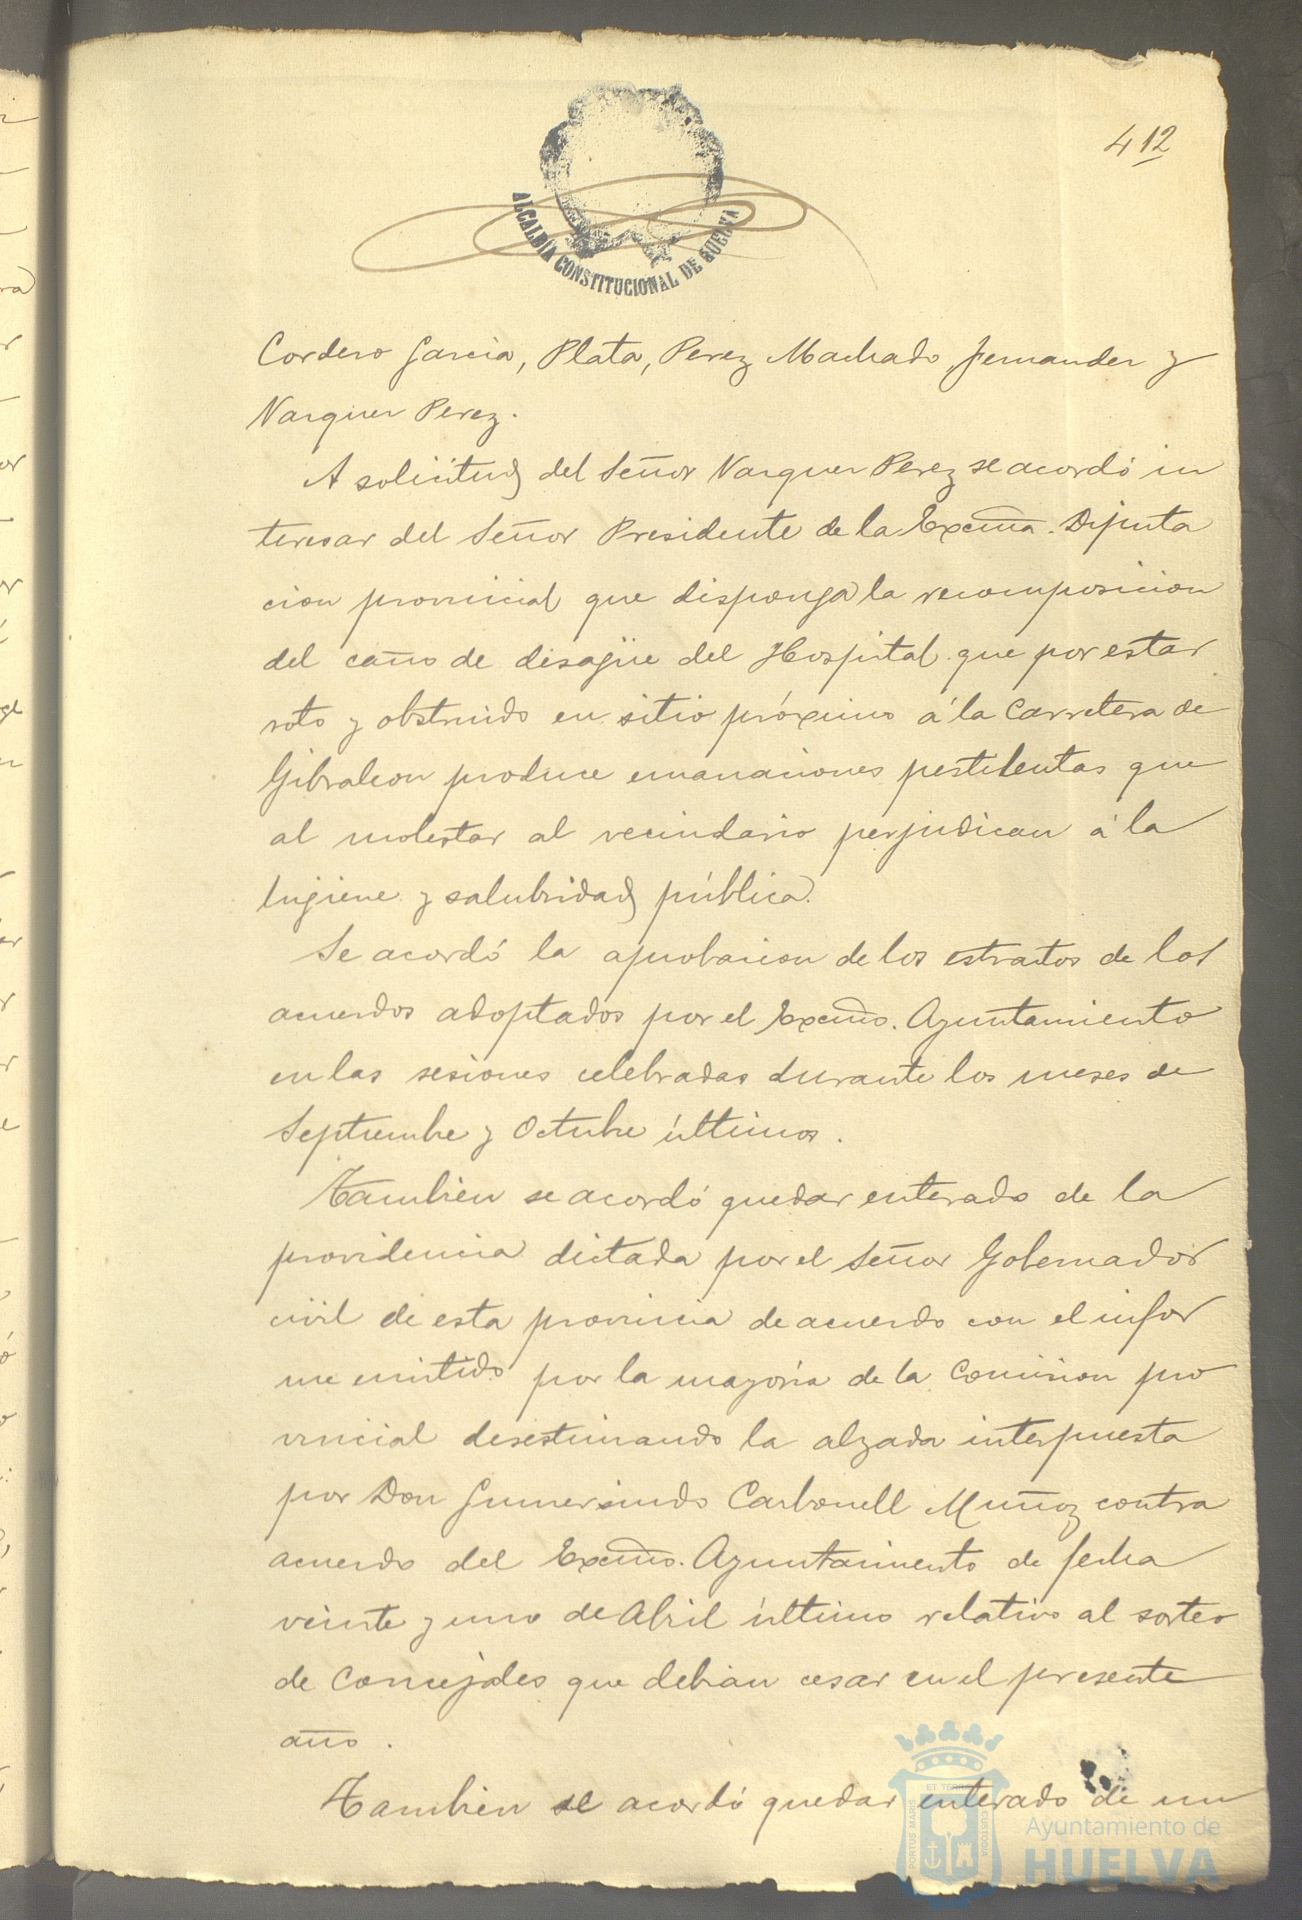 412
ALCALDIA CONSTITUCIONAL DE HUELVA
Cordero Garcia, Plata, Perez Machado, Fernandez y
Vazquez Perez.
A solicitud del Señor Vazquez Perez se acordó in
teresar del Señor Presidente de la Excma. Diputa
cion provincial que disponga la recomposicion
del caño de desagüe del Hospital que por estar
roto y obstruido en sitio próximo á la Carretera de
Gibraleon produce emanaciones pestilentas que
al molestar al vecindario perjudican á la
higiene y salubridad pública.
Se acordó la aprobacion de los estractos de los
acuerdos adoptados por el Excmo. Ayuntamiento
en las sesiones celebradas durante los meses de
Septiembre y Octubre últimos.
Tambien se acordó quedar enterado de la
providencia dictada por el Señor Gobernador
civil de esta provincia de acuerdo con el infor
me emitido por la mayoría de la Comision pro
vincial desestimando la alzada interpuesta
por Don Gumersindo Carbonell Muñoz contra
acuerdo del Excmo. Ayuntamiento de fecha
veinte y uno de Abril último relativo al sorteo
de Concejales que debian cesar en el presente
año.
Tambien se acordó quedar enterado de un
ET TERRAE
PORTUS MARIS
CUSTODIA
Ayuntamiento de
HUELVA